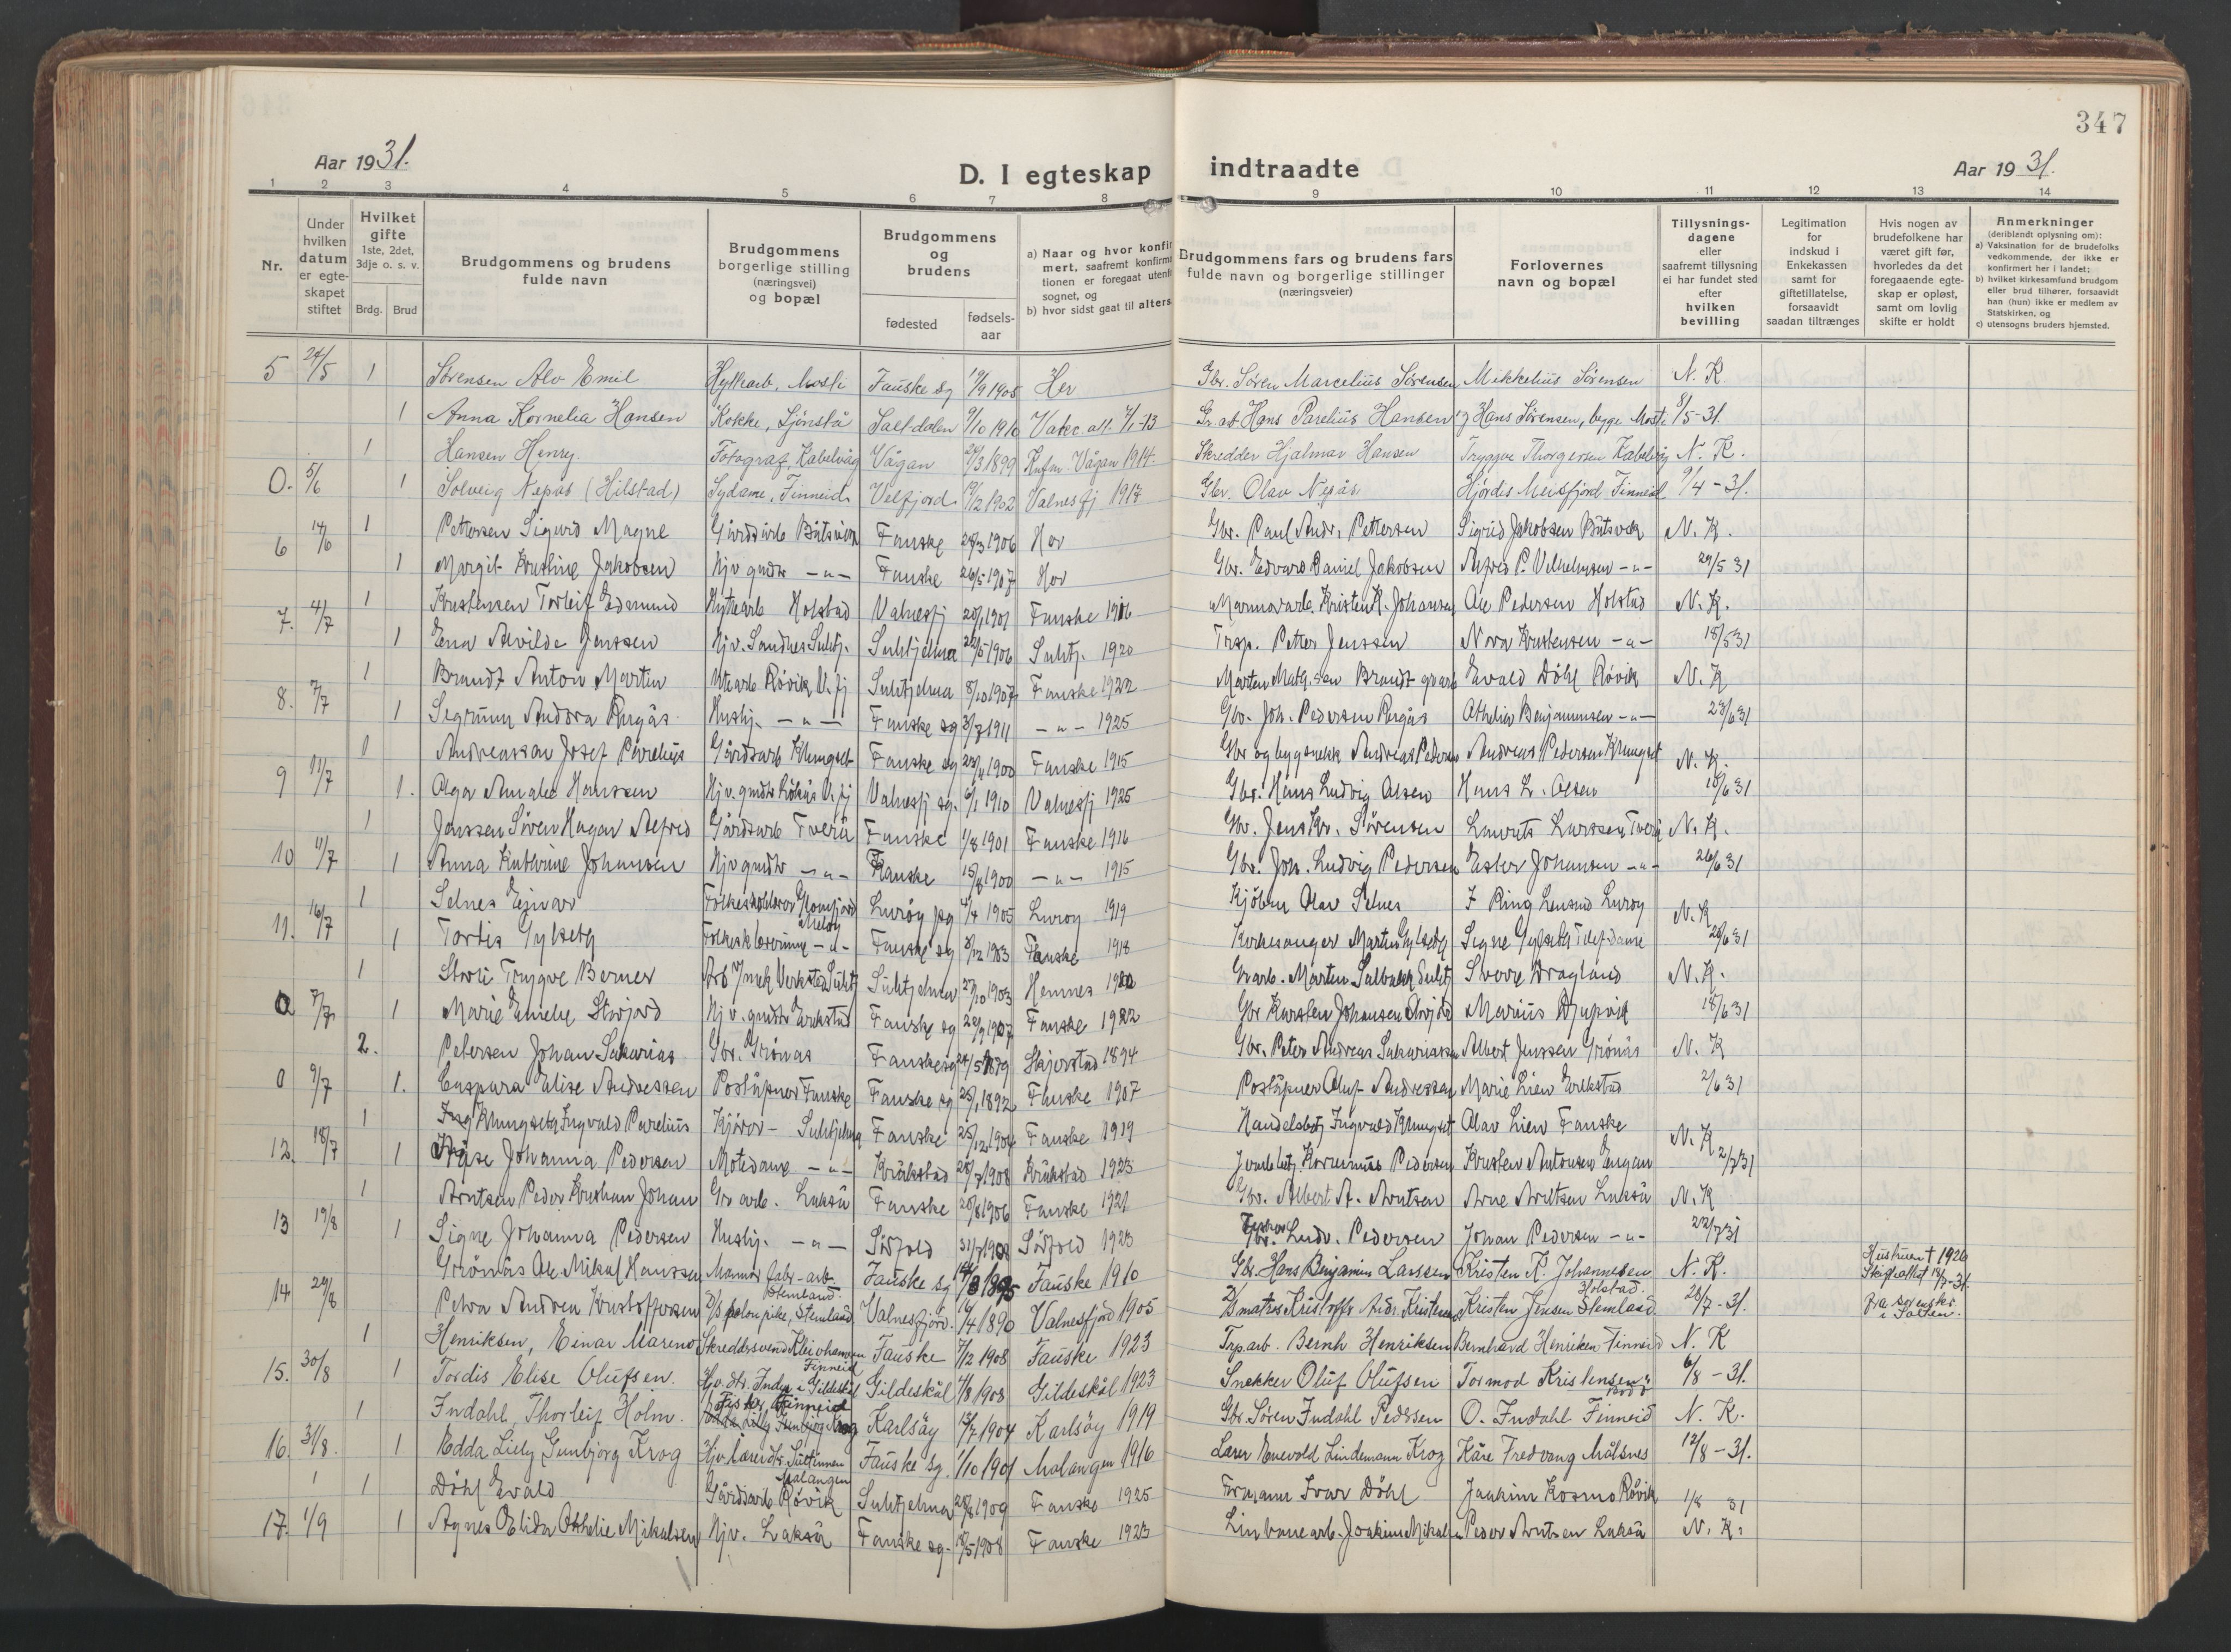 347
Aar 1931.
D. I egteskap indtraadte
Aar 1931.
1 2 3 4 5 6 7 8 9 10 11 12 13 14
Nr.
Under hvilken datum er egteskapet stiftet
Hvilket gifte 1ste, 2det, 3dje o. s. v.
Brdg. Brud
Brudgommens og brudens fulde navn
Brudgommens borgerlige stilling (næringsvei) og bopæl
Brudgommens og brudens
fødested
fødsels-aar
a) Naar og hvor konfirmert, saafremt konfirmationen er foregaat utenfor sognet, og
b) hvor sidst gaat til alters
Brudgommens fars og brudens fars fulde navn og borgerlige stillinger (næringsveier)
Forlovernes navn og bopæl
Tillysningsdagene eller saafremt tillysning ei har fundet sted efter hvilken bevilling
Legitimation for indskud i Enkekassen samt for giftetillatelse, forsaavidt saadan tiltrænges
Hvis nogen av brudefolkene har været gift før, hvorledes da det foregaaende egteskap er opløst, samt om lovlig skifte er holdt
Anmerkninger (deriblandt oplysning om):
a) Vaksination for de brudefolks vedkommende, der ikke er konfirmert her i landet;
b) hvilket kirkesamfund brudgom eller brud tilhører, forsaavidt han (hun) ikke er medlem av Statskirken, og
c) utensogns bruders hjemsted.
5 24/5 1 Sørensen Alv Emil Hytkarb. Mosti Fauske sg 19/9 1905 Her Gbr. Søren Marcelius Sørensen Mikkelius Sørensen N. K.
1 Anna Kornelia Hansen Kokke, Sjønstå Saltdalen 9/10 1910 Gr.arb Hans Parelius Hansen og Hans Sørensen, begge Mosti 8/5-31.
1 Hansen Henry Fotograf, Kabelvåg Vågan 1899 Vågan 1914. Skredder Hjalmar Hansen Tryggve Thorgersen Kabelvåg N. K.
O. 5/6 1 Solveig Nepås (Hilstad) Sydame, Finneid. Velfjord 19/12 1902 Valnesfj 1917 Gbr. Olav Nepås Hjørdis Meisfjord Finneid 9/4-31.
6 14/6 1 Pettersen Sigurd Magne Gårdsarb Båtsvik Fauske 1906 Her Gbr. Paul Andr. Pettersen Sigrid Jakobsen Båtsvik N. K.
1 Margit Kristine Jakobsen Hjv gmdtr -"- Fauske 26/5 1907 Her Gbr. Edvard Daniel Jakobsen Alfred P. Vilhelmsen -"- 29/5 31
7. 4/7 1 Kristensen Torleif Edmund Hyttearb Holstad Valnesfj 1901 Fauske 1916 Marmorarb. Kristen K. Johansen Ole Pedersen Holstad N. K.
1 Ena Alvilde Jenssen Hjv. Sandnes Sulitj. Sulitjelma 1906 Sulitj. 1920 Trsp. Petter Jenssen Nora Kristensen -"- 18/5 31
8. 7/7 1 Brandt Anton Martin Røvik V.fj Sulitjelma 8/10 1907 Fauske 1922 Brandt Evald Döhl Røvik N. K
1 Segrunn Andora Furgås Hushj. -"- Fauske sg 3/7 1911 -"- 1925 Gbr. Joh. Pedersen Othelia Benjaminsen -"- 23/6 31
9 11/7 1 Andreassen Josef Parelius Gårdsarb Klungset Fauske sg 1900 Fauske 1915 Gbr og byggsnekk Andreas Pedersen Andreas Pedersen Klungset N. K.
1. Olga Amalie Hansen Hjv. gmdtr Løkås V.fj Valnesfj sg. 6/1 1910 Valnesfj 1925 Gbr. Hans Ludvig Olsen Hans L. Olsen 18/6 31
10 11/7 1 Jenssen Søren Hagar Alfred Gårdsarb Tverå Fauske 1/8 1901 Fauske 1916 Gbr. Jens Kr. Sørensen Laurits Larssen Tverå N. K.
1 Anna Kathrine Johansen Hjv gmdtr -"- Fauske 1900 -"- 1915 Gbr. Joh. Ludvig Pedersen Ester Johansen -"- 26/6 31
11. 16/7 1 Selnes Ejnar Folkeskolelærer Glomfjord Meløy Lurøy pg 4/4 1905 Lurøy 1919 Kjöbm Olav Selnes J Ring Lensmd Lurøy N. K
1 Tordis Gylseth Folkesklærerinne -"- Fauske sg 8/12 1903 Fauske 1918 Kirkesanger Martin Gylseth Signe Gylseth Tlefdame 26/6 31
O 7/7 1 Storli Trygve Berner Arb Mek Verksted Sulitj Sulitjelma 27/10 1903 Hemnes Gr.arb. Marten Sulitj Sverre Dragland N. K.
1 Marie Emelie Storjord Hjv. gmdtr Erikstad Fauske sg 1907 Fauske 1922 Gbr Karsten Johansen Marius Djupvik 18/6 31
O 9/7 2. Petersen Johan Sakarias Gbr. Grønås Fauske sg 24/5 1879 Skjerstad 1894 Gbr. Peter Andreas Sakariassen Albert Jenssen Grönås N. K
1. Caspara Elise Andressen Postüpner Fauske Fauske sg 25/1 1892 Fauske 1907 Postüpner Oluf Andressen Marie Lien Erikstad 2/6 31
12. 18/7 1 Klungseth Ingvald Parelius Kjører - Sulitjelma Fauske 25/12 1904 Fauske 1919 Handelsbetj Ingvald Klungset Olav Lien Fauske N. K
1 Åse Johanna Pedersen Motedame -"- Kråkstad 1908 Kråkstad 1923 Pedersen Kristen Antonsen Engan 2/7 31
13 19/8 1 Arntsen Peder Kristian Johan Gr arb. Lakså Fauske 20/8 1906 Fauske 1921 Gbr. Albert A. Arntsen Arne Arntsen Lakså N. K
1 Signe Johanna Pedersen Hushj. -"- Sørfold Sørfold 1923 Gbr. Ludv. Pedersen Johan Pedersen -"- 22/7 31
14 29/8 Grönås Ole Mikal Hanssen Marmor fabr-arb. Stemland. Fauske sg 1895 Fauske 1910 Gbr. Hans Benjamin Larssen Kristen K. Johannesen Holstad. N. K. Hustruen † 1926
Petra Andrea Kristoffersen D/S salonpike, Stemland Valnesfjord. 1890 Valnesfjord 1905 D/S matros Kristoffer Andr. Kristensen Kristen Jensen Stemland 28/7-31. fra sorenskr. i Salten.
15. 30/8 1 Henriksen, Einar Mareno Skreddersvend Finneid Fauske 7/12 1908 Fauske 1923 Trp.arb. Bernh Henriksen Bernhard Henriksen Finneid N. K
1 Tordis Elise Olufsen. Hjv. dtr. Inder i Gildeskål Gildeskål 4/8 1908 Gildeskål 1923 Snekker Oluf Olufsen Tormod Kristensen 6/8-31.
16. 31/8. 1 Indahl, Thorleif Holm. Fisker, Finneid Karlsøy 1904 Karlsøy 1919 Gbr. Søren Indahl Pedersen O. Indahl Finneid N. K.
1 Edda Lilly Gunbjørg Krog Hjv. lærerdtr. Malangen Fauske sg. 1/10 1901 Malangen 1916 Lærer Enevold Lindemann Krog Kåre Fredvang Målsnes 12/8-31.
17. 1/9 1 Döhl Evald Gårdsarb Røvik Sulitjelma 1909 Fauske 1925 Formann Ivar Döhl Joakim Kosmo Røvik 1/8 31
1 Agnes Elida Othelie Mikalsen Hjv. Lakså Fauske sg. 1908 Fauske 1923 Linbanearb. Joakim Mikalsen Peder Arntsen Lakså N. K.